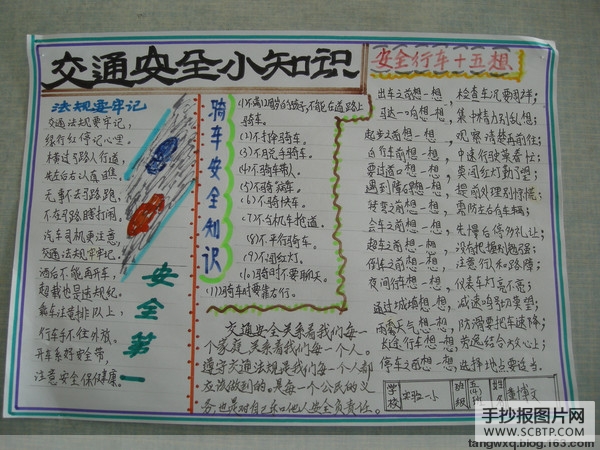 交通安全小知识
安全行车十五想
法规要牢记
交通法规要牢记,
绿行红停记心里.
横过马路人行道,
先左后右认真瞧.
无事不去马路跑,
不在马路瞎打闹.
汽车司机更注意,
交通法规牢牢记.
酒后不能再开车,
超载也是违规纪.
乘车注意排队上,
行车手不住外放.
开车系好安全带,
注意安全保健康.
安全第一
骑车安全知识
骑车.
(2)不打伞骑车.
(3)不脱手骑车.
(4)不骑车带人.
(5)不骑
(6)不骑快车.
(7)不与机车抢道.
(8)不平行骑车.
(9)不闯红灯.
(10)骑车时不要聊天.
(11)骑车时要靠右行.
交通安全关系着我们每一
个家庭,关系着我们每一个人。
遵守交通法规是我们每一个人都
应该做到的。是每一个公民的义
务也是对自己和他人安全负责任。
出车之前想一想,检查车况要周详;
起步之前想一想,观察清楚再前往;
要过道口想一想,莫闯红灯勤了望;
遇到障碍想一想,提前处理别惊慌;
转弯之前想一想,需防左右有车辆;
会车之前想一想,先慢后停多礼让;
超车之前想一想,没有把握别勉强;
倒车之前想一想,注意行人和路障;
夜间行车想一想,仪表车灯亮不亮;
通过城镇想一想,减速鸣号切莫望;
雨雾天气想一想,防滑要把车速降;
长途行车想一想,劳逸结合放心上;
停车之前想一想,选择地点要适当.
学校
实验一小
班级
姓名
手抄报图片网
WWW.SCBTP.COM
tangwxq.blog.163.com